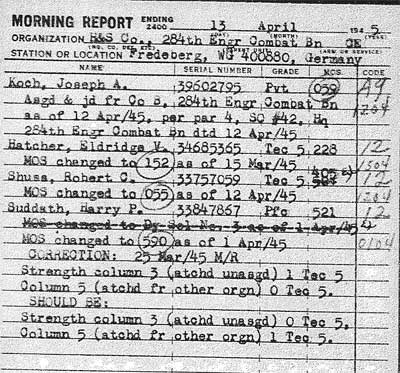 MORNING REPORT ENDING 2400 13 April 1945
(DAY) (MONTH) (YEAR)
ORGANIZATION H&S Co., 284th Engr Combat Bn CE
(ARM OR SERVICE)
STATION OR LOCATION Fredeberg, WG 400880, Germany
NAME SERIAL NUMBER GRADE MOS CODE
Koch, Joseph A. 39502795 Pvt 059 A9
Asgd & jd fr Co B, 284th Engr Combat Bn
as of 12 Apr/45, per par 4, SO #42, Hq 1204
284th Engr Combat Bn dtd 12 Apr/45
Hatcher, Eldridge V. 34685365 Tec 5 228 12
MOS changed to 152 as of 15 Mar/45 1504
Shusa, Robert C. 33757059 Tec 5 12
MOS changed to 055 as of 12 Apr/45 1204
Suddath, Harry P. 33847867 Pfc 521 12
MOS changed to By Sol No. 3 as of 1 Apr/45
MOS changed to 590 as of 1 Apr/45 0104
CORRECTION: 25 Mar/45 M/R
Strength column 3 (atchd unasgd) 1 Tec 5
Column 5 (atchd fr other orgn) 1 Tec 5.
SHOULD BE:
Strength column 3 (atchd unasgd) 0 Tec 5.
Column 5 (atchd fr other orgn) 0 Tec 5.